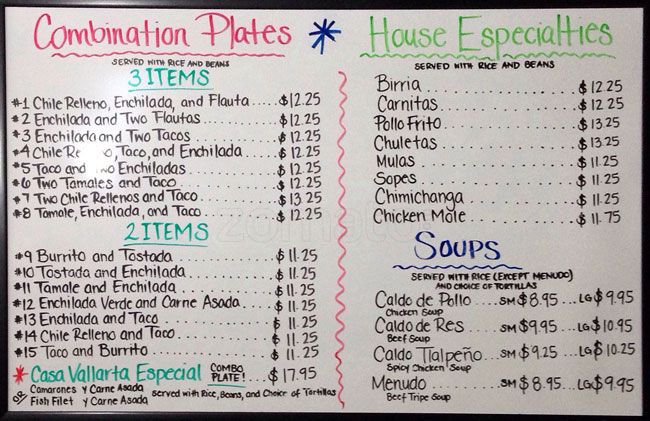 Combination Plates
SERVED WITH RICE AND BEANS
3 ITEMS
#1 Chile Relleno, Enchilada, and Flauta .... $12.25
#2 Enchilada and Two Flautas ........ $12.25
#3 Enchilada and Two Tacos ......... $12.25
#4 Chile Re no, Taco, and Enchilada ..... $12.25
#5 Taco and Enchiladas .......... $12.25
#6 Two Tamales and Taco .......... $12.25
#7 Two Chile Rellenos and Taco ..... $13.25
#8 Tamale, Enchilada, and Taco ...... $12.25
2 ITEMS
#9 Burrito and Tostada .......... $11.25
#10 Tostada and Enchilada ......... $11.25
#11 Tamale and Enchilada .......... $11.25
#12 Enchilada Verde and Carne Asada .... $11.25
#13 Enchilada and Taco ........... $11.25
#14 Chile Relleno and Taco ......... $11.25
#15 Taco and Burrito ............ $11.25
* Casa Vallarta Especial COMBO PLATE! ... $17.95
Camarones y Carne Asada
OR
Fish Filet y Carne Asada
served with Rice, Beans, and Choice of Tortillas
*
House Especialties
SERVED WITH RICE AND BEANS
Birria .................. $12.25
Carnitas ................ $12.25
Pollo Frito .............. $13.25
Chuletas ................ $13.25
Mulas .................. $11.25
Sopes .................. $11.25
Chimichanga ............. $11.25
Chicken Mole ............ $11.75
SOUPS
SERVED WITH RICE (EXCEPT MENUDO)
AND CHOICE OF TORTILLAS
Caldo de Pollo .... SM $8.95 ... LG $9.95
Chicken Soup
Caldo de Res .... SM $9.95 ... LG $10.95
Beef Soup
Caldo Tlalpeño .... SM $9.25 ... LG $10.25
Spicy Chicken Soup
Menudo ....... SM $8.95 ... LG $9.95
Beef Tripe Soup
zomato